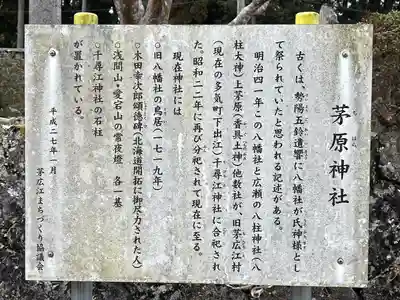 茅原神社
ち はら
古くは、勢陽五鈴遺響に八幡社が氏神様とし
て祭られていたと思われる記述がある。
明治四一年この八幡社と広瀬の八柱神社(八
柱大神)上茅原(香具土神)他数社が、旧茅広江村
(現在の多気町下出江)千尋江神社に合祀され
た。昭和二二年に再び分祀されて現在に至る。
現在神社には
○旧八幡社の鳥居(一七一九年)
○木田幸次郎頌徳碑(北海道開拓に御尽力された人)
○浅間山・愛宕山の常夜燈 各一基
○千尋江神社の石柱
が置かれている。
平成二七年一月
茅広江まちづくり協議会